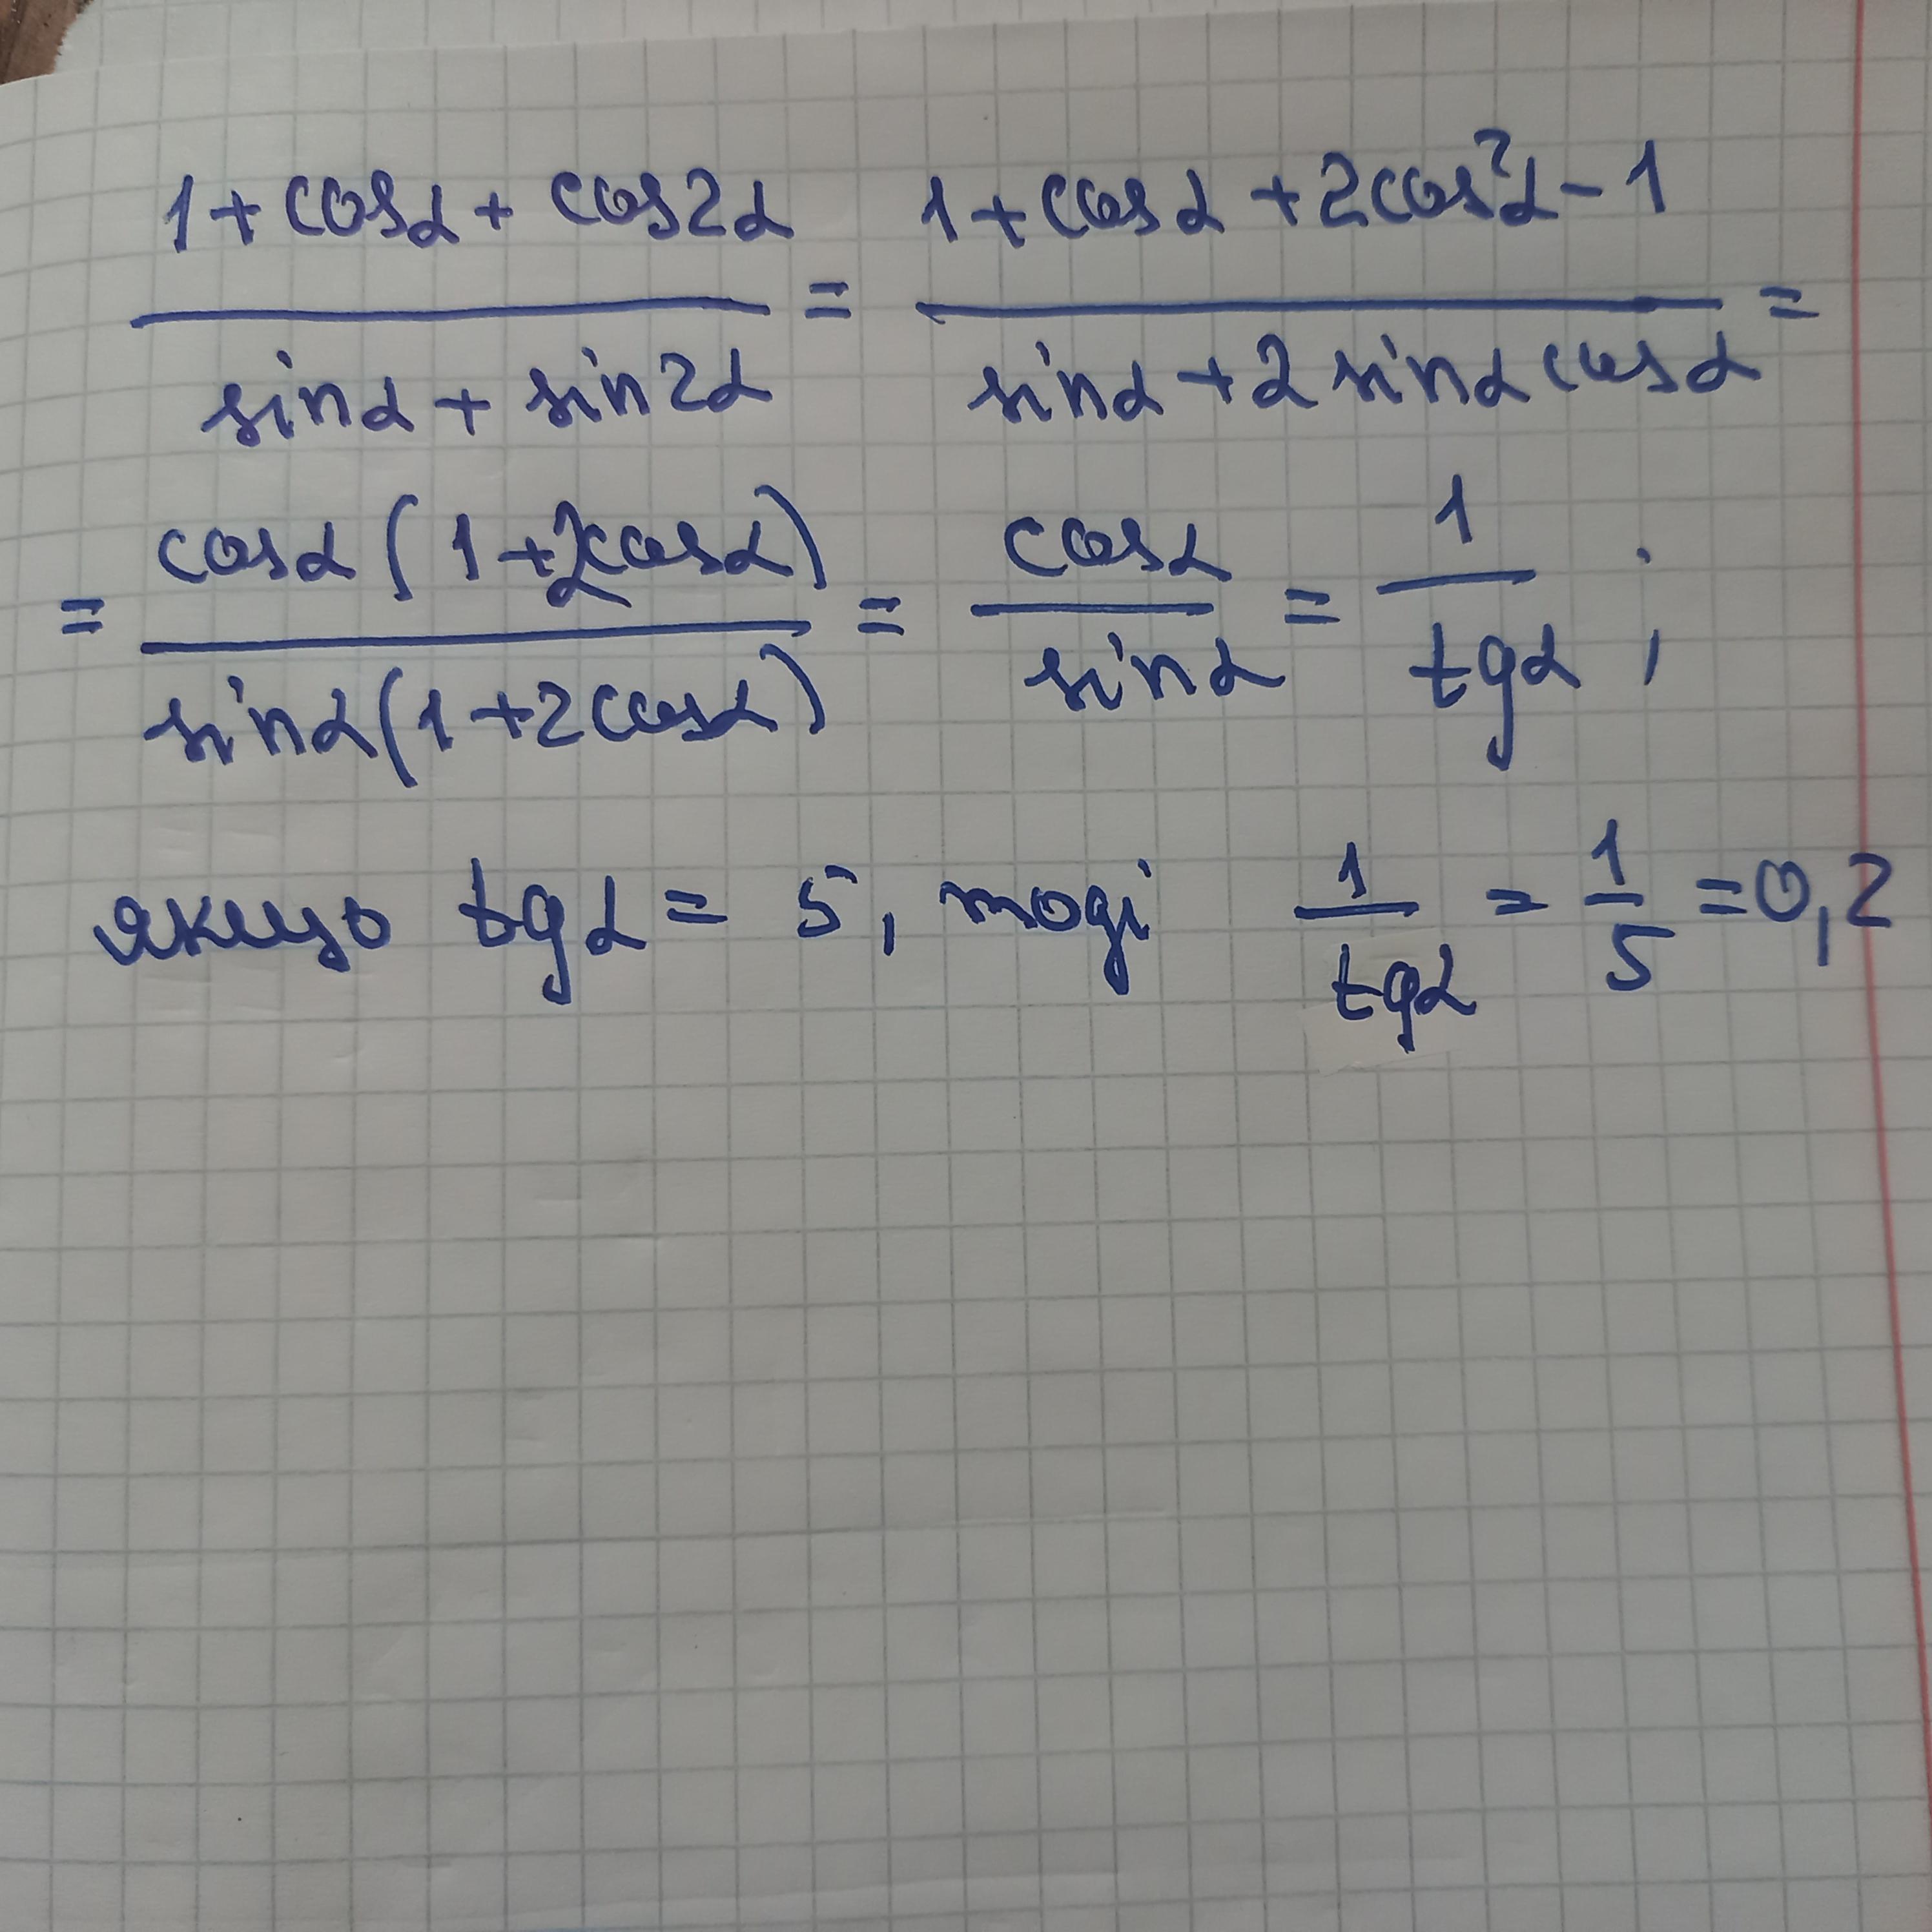 (1+cosα+cos2α)/(sinα+sin2α) = (1+cosα+2cos²α-1)/(sinα+2sinαcosα) =
= (cosα(1+2cosα))/(sinα(1+2cosα)) = cosα/sinα = 1/tgα ;
якщо tgα = 5, тоді 1/tgα = 1/5 = 0,2